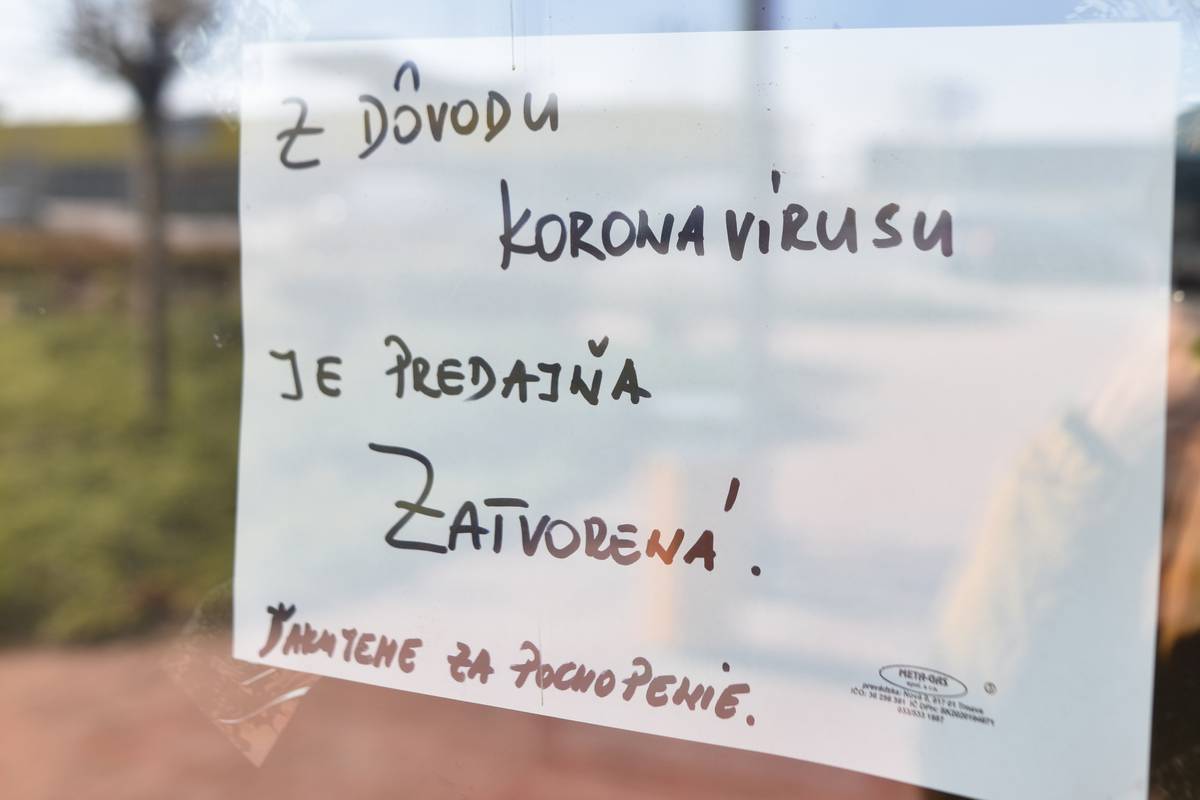 Z DÔVODU
KORONAVÍRUSU
JE PREDAJŇA
ZATVORENÁ.
ĎAKUJEME ZA POCHOPENIE.
META-GAS
spol. s r.o.
prevádzka: Nová 8, 917 01 Trnava
IČO: 36 256 391 IČ DPH:
033/533 1887